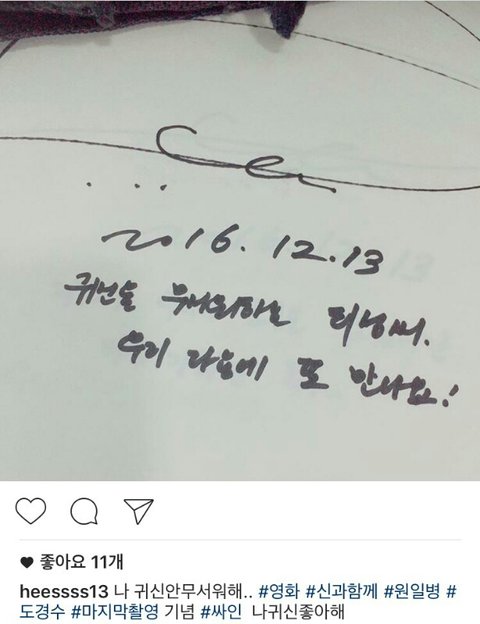 2016. 12. 13
귀신을 무서워하는
우리 다음에 또 만나요!
좋아요 11개
heessss13 나 귀신안무서워해.. #영화 #신과함께 #원일병 #
도경수 #마지막촬영 기념 #싸인 나귀신좋아해